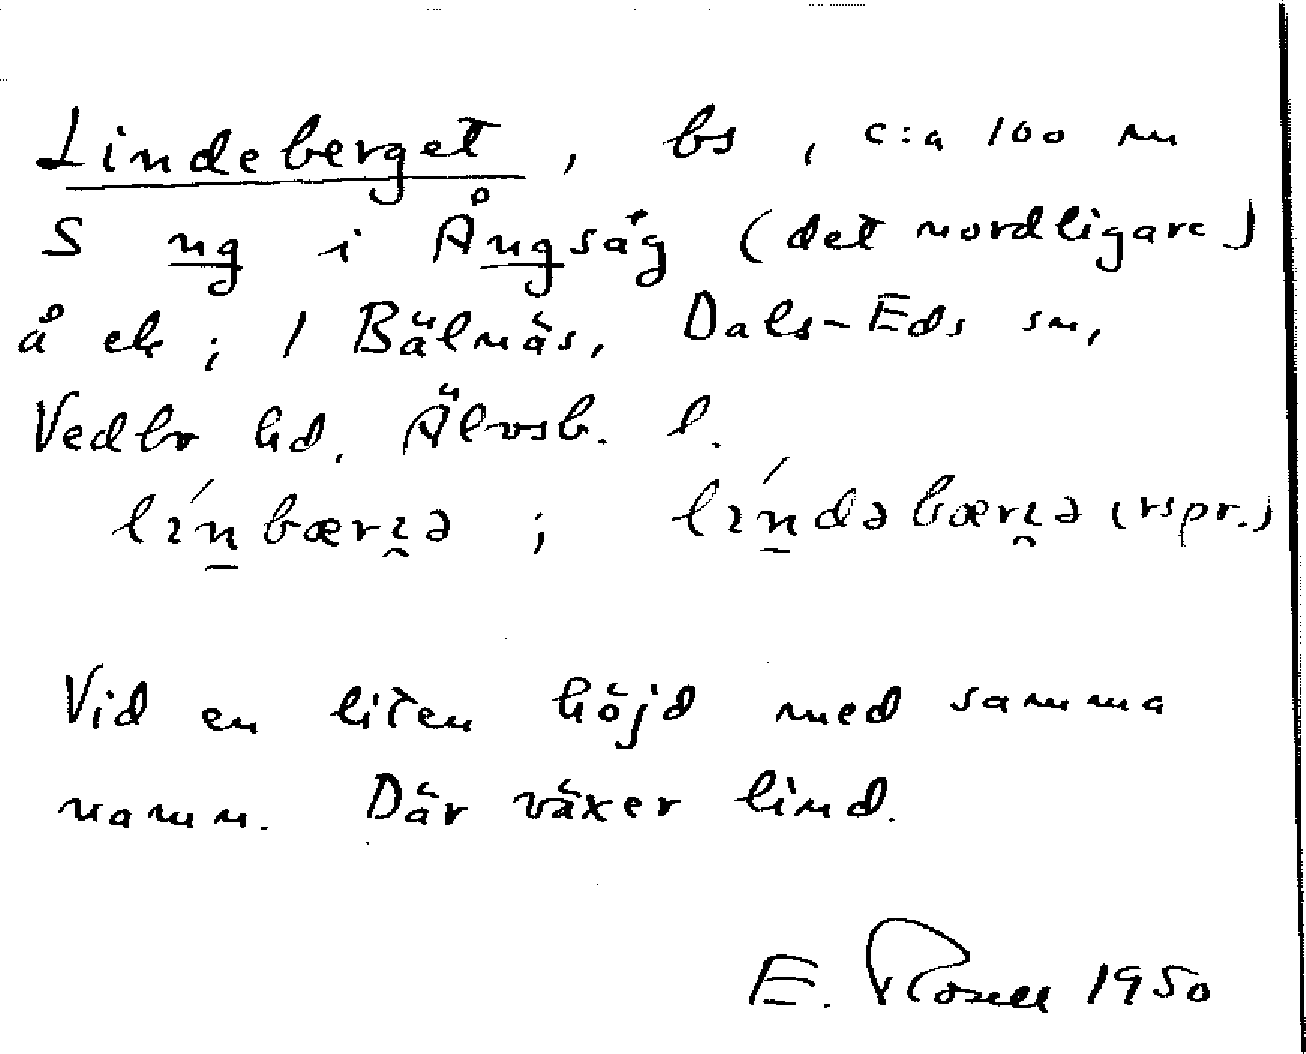 Lindeberget, bs, c:a 100 m
S ng i Ångsåg (det nordligare)
å ek; 1 Bälnäs, Dals-Eds sn,
Vedbo hd. Älvsb. l.
lɩ́n̠bærɩ̯ə ; lɩ́n̠dəbærɩ̯ə (rspr.)
Vid en liten höjd med samma
namn. Där växer lind.
E. Rosell 1950